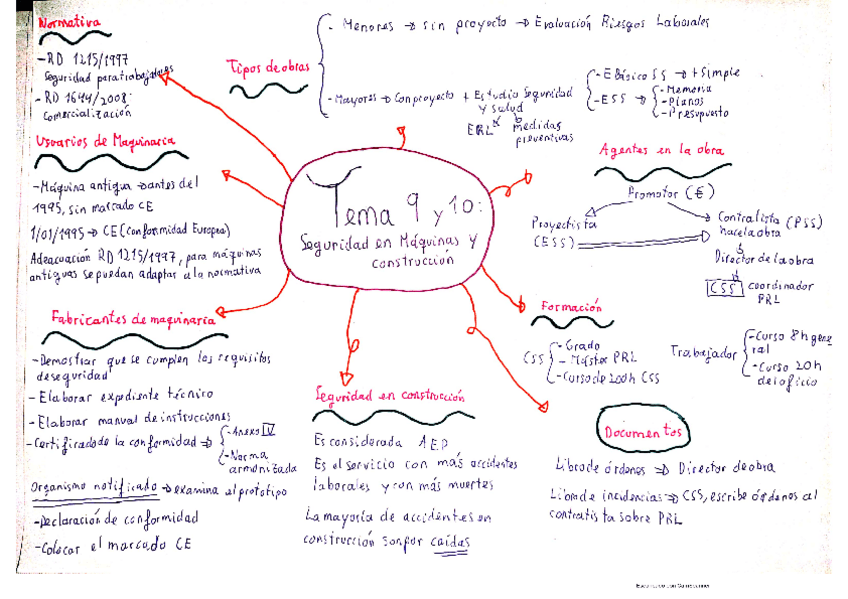 Normativa
-RD 1215/1997
Seguridad para trabajadores
-RD 1644/2008:
comercialización
Tipos de obras
- Menores → sin proyecto → Evaluación Riesgos Laborales
- Mayores → Con proyecto + Estudio Seguridad
y Salud
ERL
medidas
preventivas
- EBásico SS → + simple
- ESS →
- Memoria
- Planos
- Presupuesto
Usuarios de Maquinaria
-Máquina antigua → antes del
1995, sin marcado CE
1/01/1995 → CE (Conformidad Europea)
Adeacuación RD 1215/1997, para máquinas
antiguas se puedan adaptar a la normativa
Tema 9 y 10:
Seguridad en Máquinas y
construcción
Agentes en la obra
Promotor (€)
Proyectista
(ESS)
Contralista (PSS)
hace la obra
Director de la obra
CSS coordinador
PRL
Fabricantes de maquinaria
-Demostrar que se cumplen los requisitos
de seguridad
- Elaborar expediente técnico
- Elaborar manual de instrucciones
-Certificado de la conformidad →
- Anexo IV
- Norma
armonizada
Organismo notificado → examina el prototipo
-Declaración de conformidad
-Colocar el marcado CE
Seguridad en construcción
Es considerada AEP
Es el servicio con más accidentes
laborales y con más muertes
La mayoría de accidentes en
construcción son por caídas
Formación
CSS
- Grado
- Máster PRL
- Curso de 200h CSS
Trabajador
- Curso 8h gene
ral
- Curso 20h
del oficio
Documentos
Libro de órdenes ⇒ Director de obra
Libro de incidencias ⇒ CSS, escribe órdenes al
contratista sobre PRL
Escaneado con CamScanner